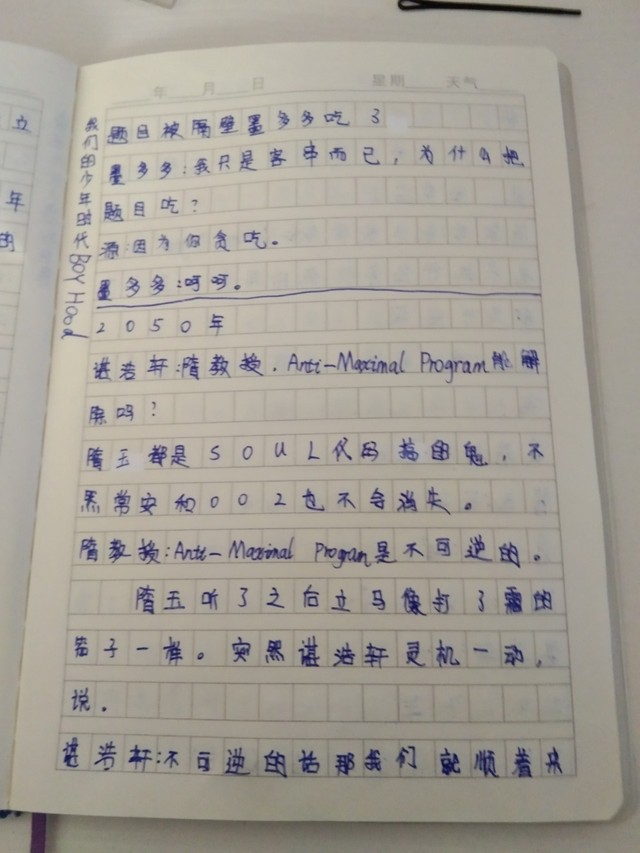 年 月 日 星期 天气
我们的少年时代 BOY Hood
题目被隔壁墨多多吃了
墨多多:我只是客串而已,为什么把
题目吃?
源:因为你贪吃。
墨多多:呵呵。
2050年
谌浩轩:隋教授.Anti-Maximal Program能解
除吗?
隋玉都是SOUL代码搞的鬼,不
然常安和002也不会消失。
隋教授:Anti-Maximal Program是不可逆的。
隋玉听了之后立马像打了霜的
茄子一样。突然谌浩轩灵机一动,
说.
谌浩轩:不可逆的话那我们就顺着来
立
年
的